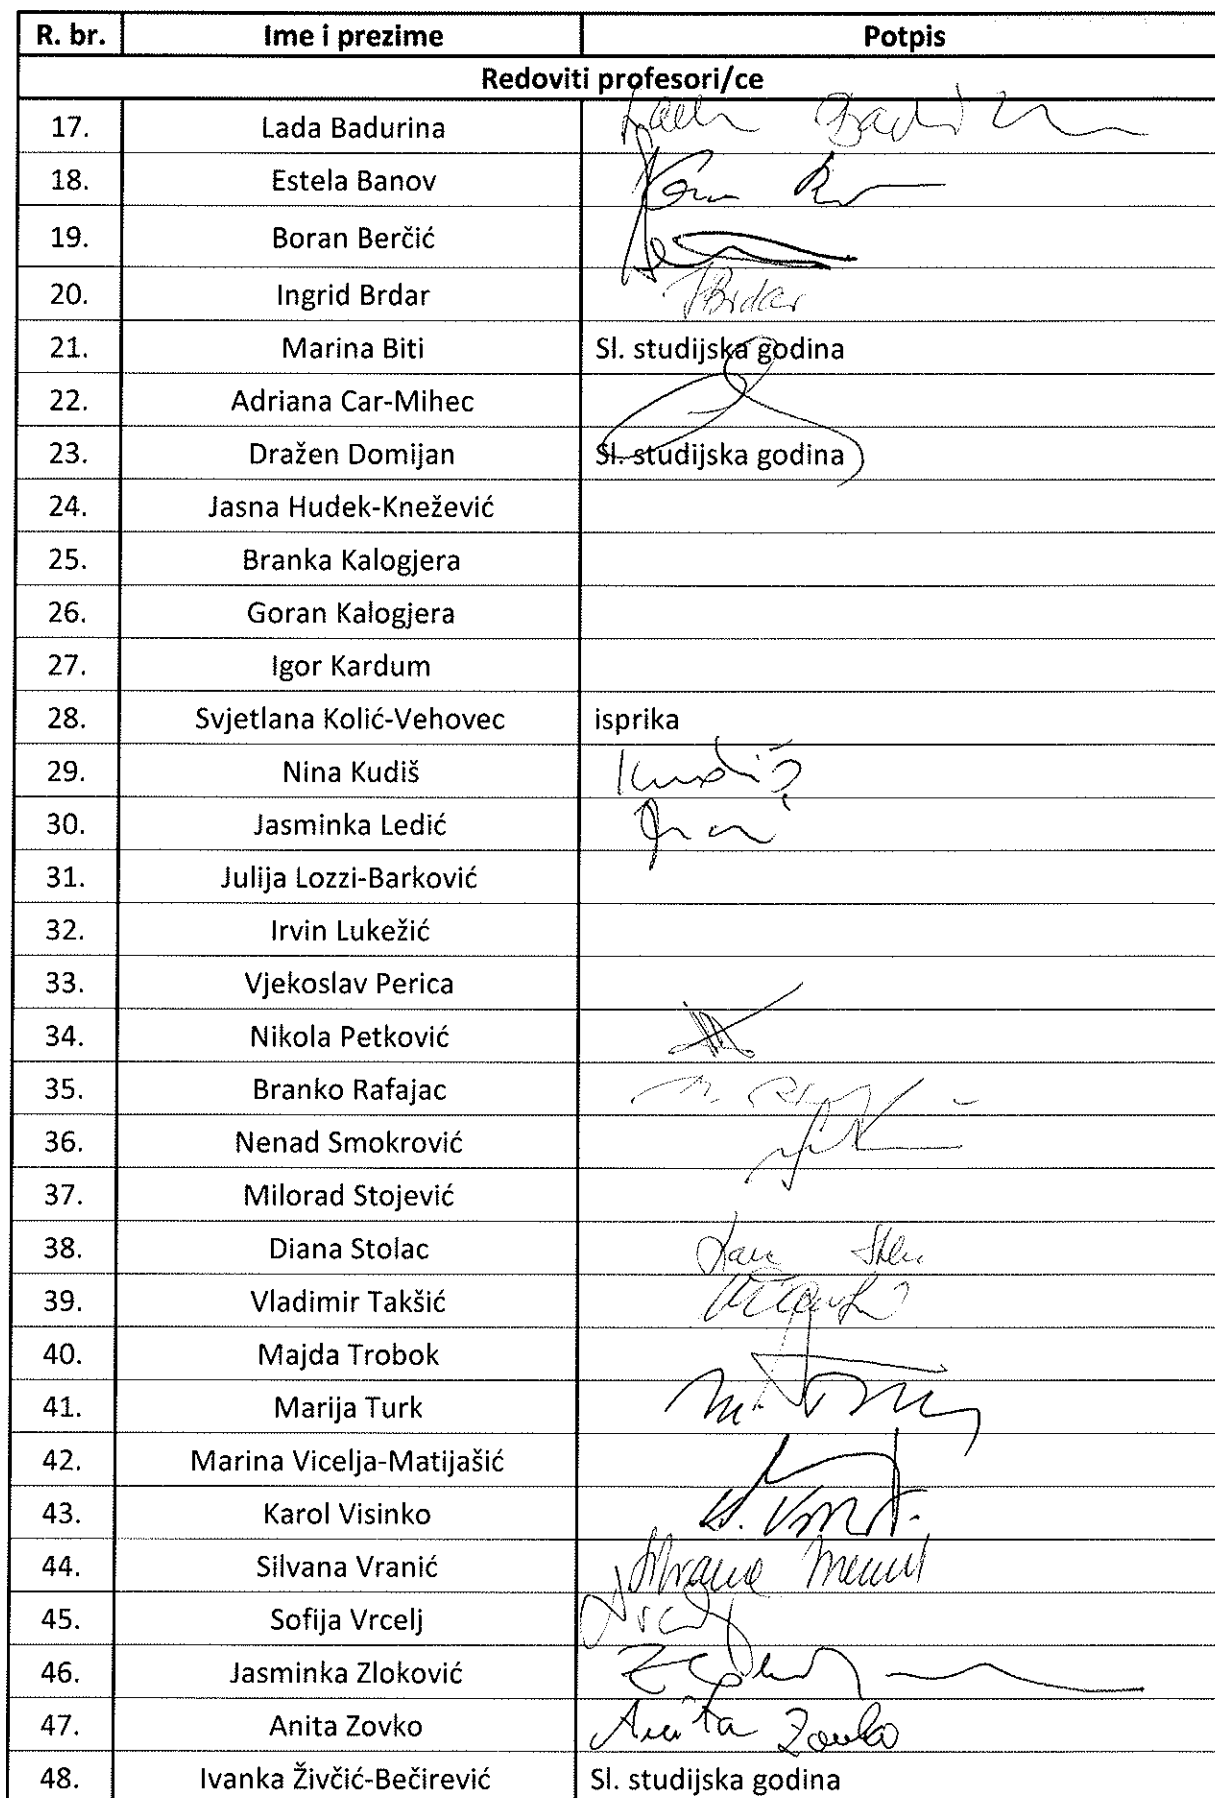 R. br. Ime i prezime Potpis
Redoviti profesori/ce
17. Lada Badurina
18. Estela Banov
19. Boran Berčić
20. Ingrid Brdar IBrdar
21. Marina Biti Sl. studijska godina
22. Adriana Car-Mihec
23. Dražen Domijan Sl. studijska godina
24. Jasna Hudek-Knežević
25. Branka Kalogjera
26. Goran Kalogjera
27. Igor Kardum
28. Svjetlana Kolić-Vehovec isprika
29. Nina Kudiš Kudiš
30. Jasminka Ledić
31. Julija Lozzi-Barković
32. Irvin Lukežić
33. Vjekoslav Perica
34. Nikola Petković
35. Branko Rafajac
36. Nenad Smokrović
37. Milorad Stojević
38. Diana Stolac
39. Vladimir Takšić
40. Majda Trobok
41. Marija Turk
42. Marina Vicelja-Matijašić
43. Karol Visinko
44. Silvana Vranić
45. Sofija Vrcelj
46. Jasminka Zloković
47. Anita Zovko Anita Zovko
48. Ivanka Živčić-Bečirević Sl. studijska godina